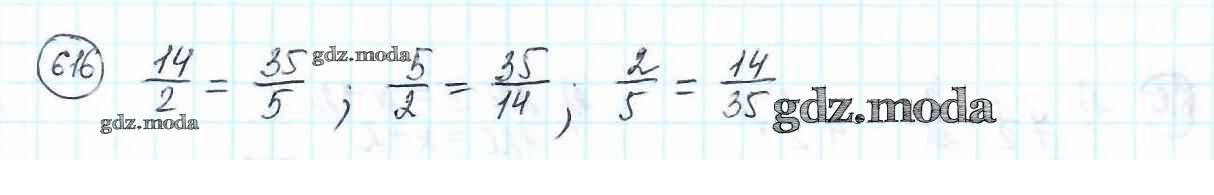 616 14/2 = 35/5 ; 5/2 = 35/14 ; 2/5 = 14/35
gdz.moda
gdz.moda
gdz.moda